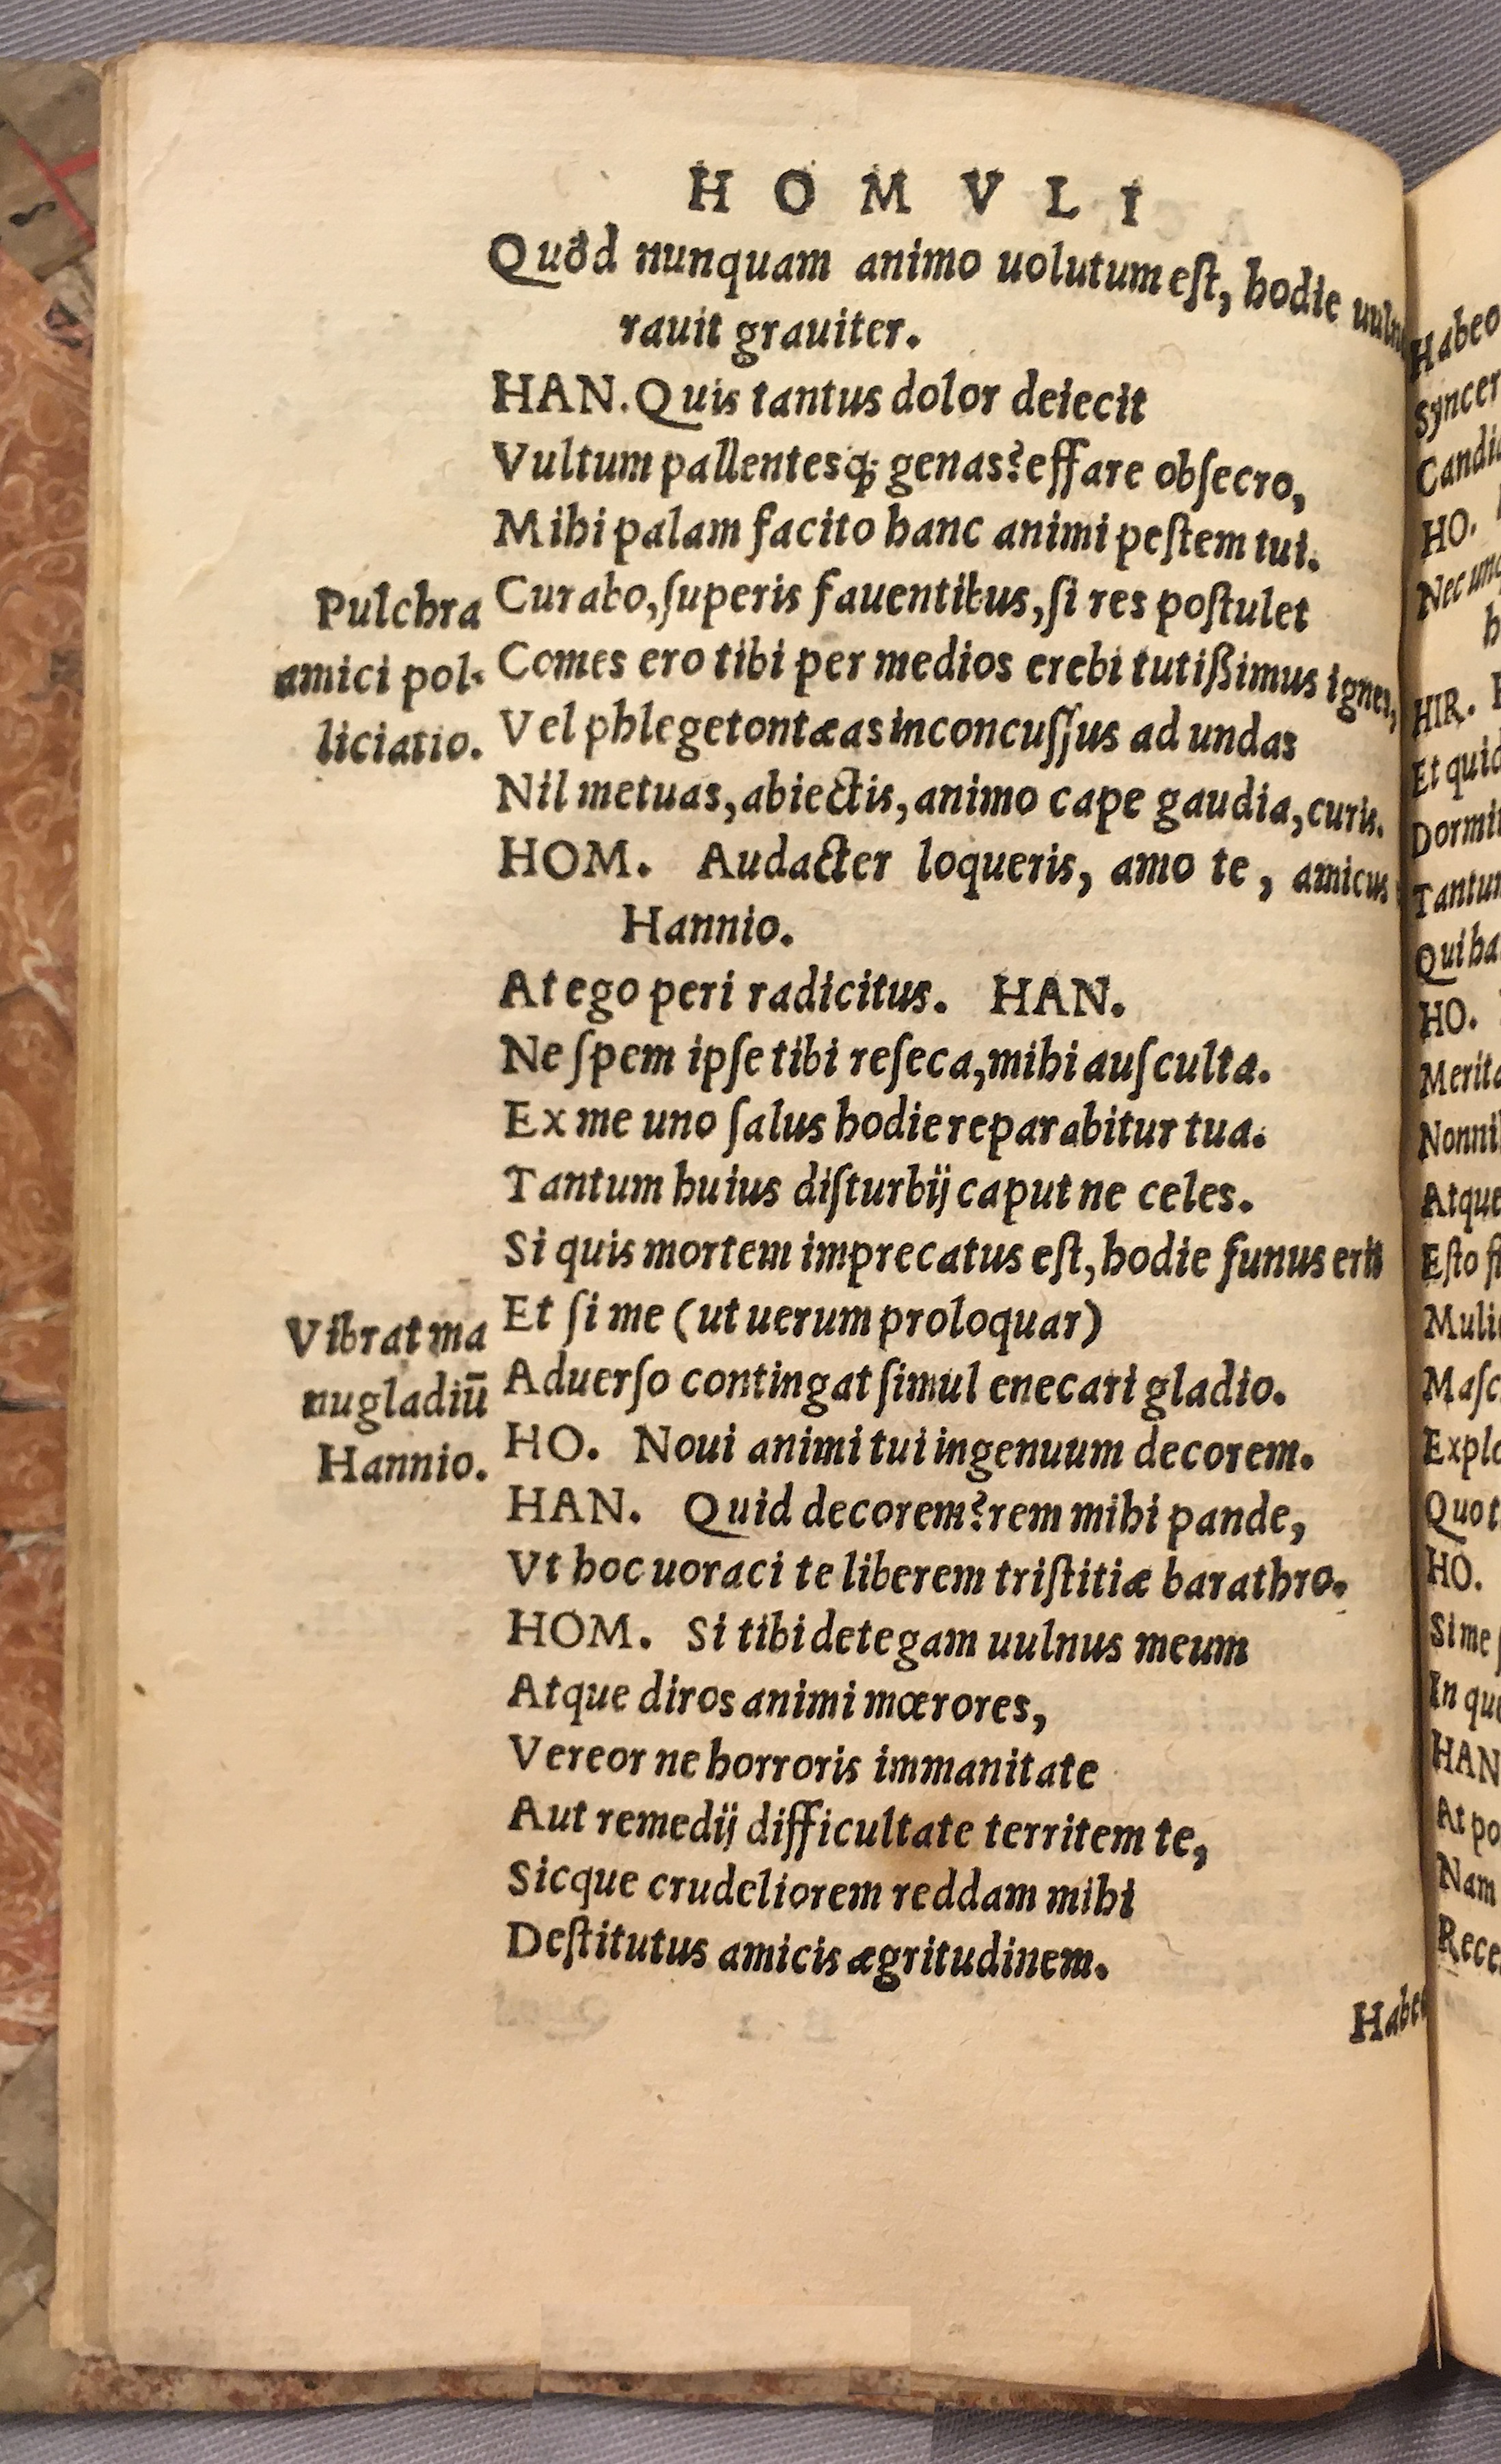 HOMVLI
Quòd nunquam animo uolutum eſt, hodie uuln
rauit grauiter.
HAN. Quis tantus dolor deiecit
Vultum pallentesq; genas? effare obſecro,
Mihi palam facito hanc animi peſtem tui.
Pulchra
amici pol-
liciatio.
Curabo, ſuperis fauentibus, ſi res poſtulet
Comes ero tibi per medios erebi tutißimus ignes,
Vel phlegetontæas inconcuſſus ad undas
Nil metuas, abiectis, animo cape gaudia, curis.
HOM. Audacter loqueris, amo te, amicus
Hannio.
At ego peri radicitus. HAN.
Ne ſpem ipſe tibi reſeca, mihi auſculta.
Ex me uno ſalus hodie reparabitur tua.
Tantum huius diſturbij caput ne celes.
Si quis mortem imprecatus eſt, hodie funus erit
Vibrat ma
nu gladiū
Hannio.
Et ſi me (ut uerum proloquar)
Aduerſo contingat ſimul enecari gladio.
HO. Noui animi tui ingenuum decorem.
HAN. Quid decorem? rem mihi pande,
Vt hoc uoraci te liberem triſtitiæ barathro.
HOM. Si tibi detegam uulnus meum
Atque diros animi mœrores,
Vereor ne horroris immanitate
Aut remedij difficultate territem te,
Sicque crudeliorem reddam mihi
Deſtitutus amicis ægritudinem.
Habeo
Habeo
Syncer
Candi
HO.
Nec unq
h
HIR.
Et quid
Dormi
Tantu
Qui ha
HO.
Merita
Nonni
Atque
Eſto ſi
Muli
Maſc
Explo
Quot
HO.
Si me
In qu
HAN
At po
Nam
Rece